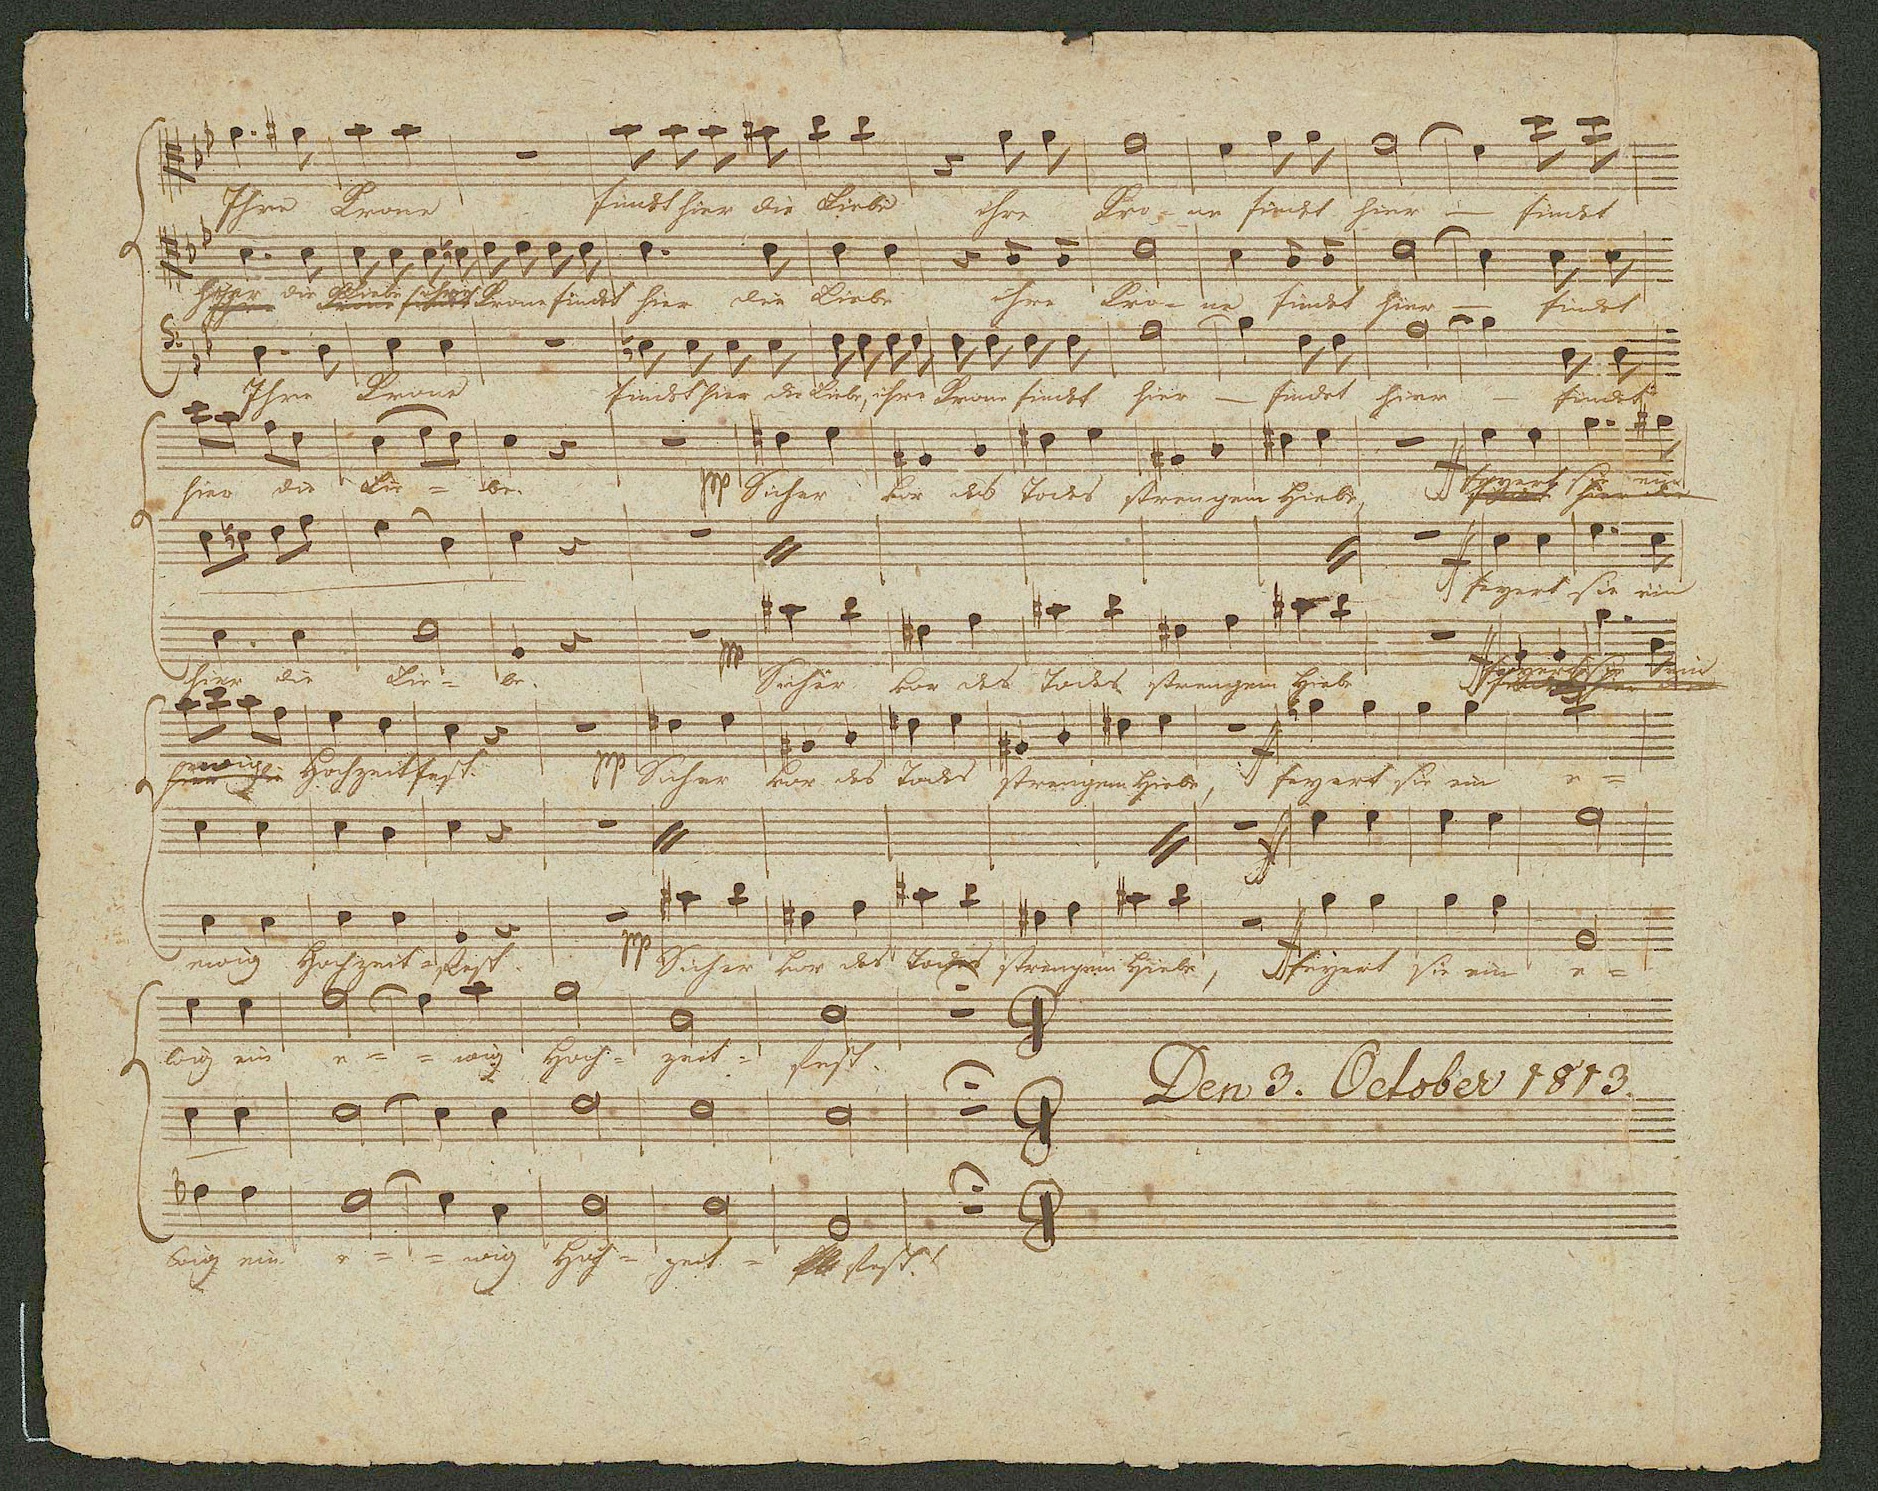 Ihre Krone findet hier die Liebe ihre Kro - ne findet hier — findet
hier die Liebe ihre Krone findet hier die Liebe ihre Kro - ne findet hier — findet
Ihre Krone findet hier die Liebe, ihre Krone findet hier — findet hier — findet
hier die Lie = be. pp Sicher vor des Todes strengem Hiebe, ff feyert sie ein
ff feyert sie ein
hier die Lie = be. pp Sicher vor des Todes strengem Hiebe ff feyert sie ein
ewig Hochzeitfest. pp Sicher vor des Todes strengem Hiebe, ff feyert sie ein e =
ff
ewig Hochzeit = fest. pp Sicher vor des Todes strengem Hiebe, ff feyert sie ein e =
wig ein e = = wig Hoch = zeit = fest.
Den 3. October 1813.
wig ein e = = wig Hoch = zeit = fest!